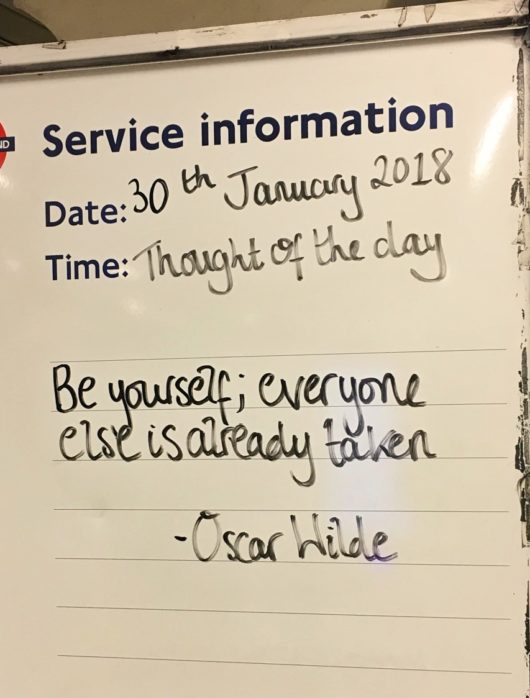 ND
Service information
Date: 30th January 2018
Time: Thought of the day
Be yourself; everyone
else is already taken
-Oscar Wilde